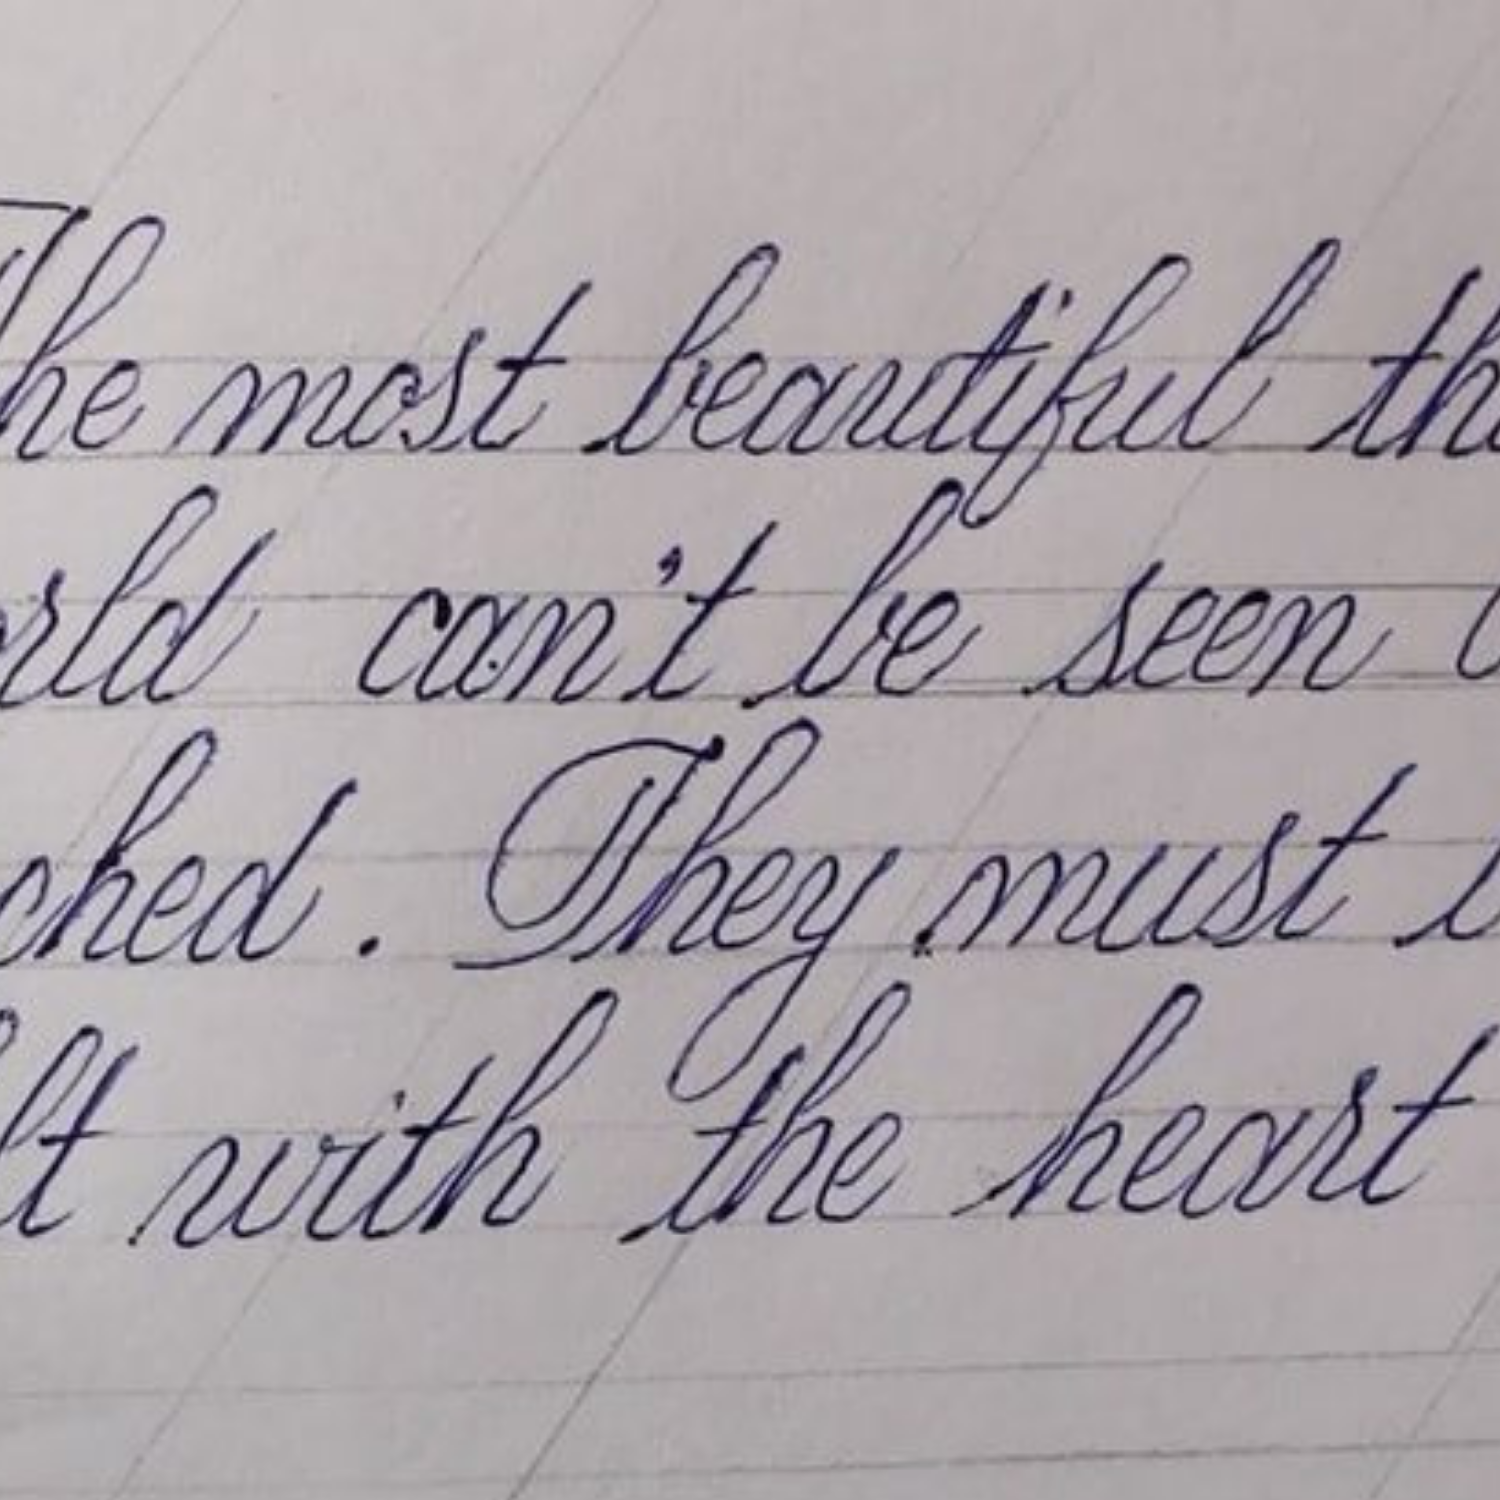 The most beautiful th
orld can't be seen
ched. They must
lt with the heart